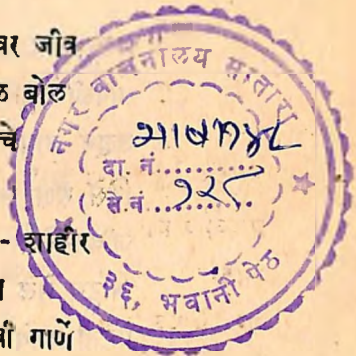 वर जीव
ठ बोल
चे
- शाहीर
वी गाणें
नगर वाचनालय सातारा
दा. नं...........
से.नं...१२८
३६, भवानी पेठ